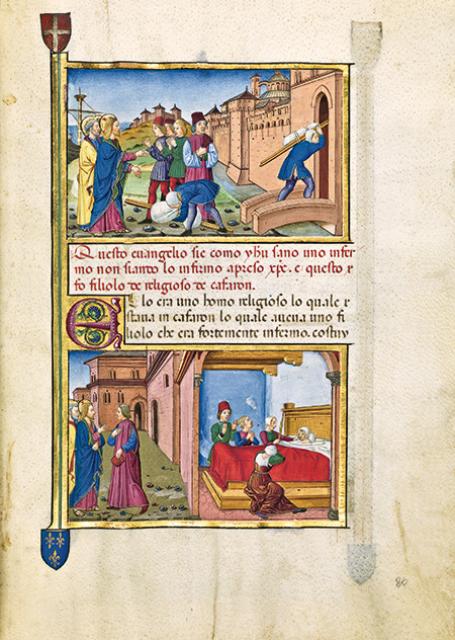 Questo euangelio sie como yhu sano uno infer
mo non siando lo infirmo apreso xpe. e questo
fo filiolo de religioso de cafaron.
El lo era uno homo religioso lo quale
staua in cafaron lo quale aueua uno fi
liolo che era fortemente infermo.
80